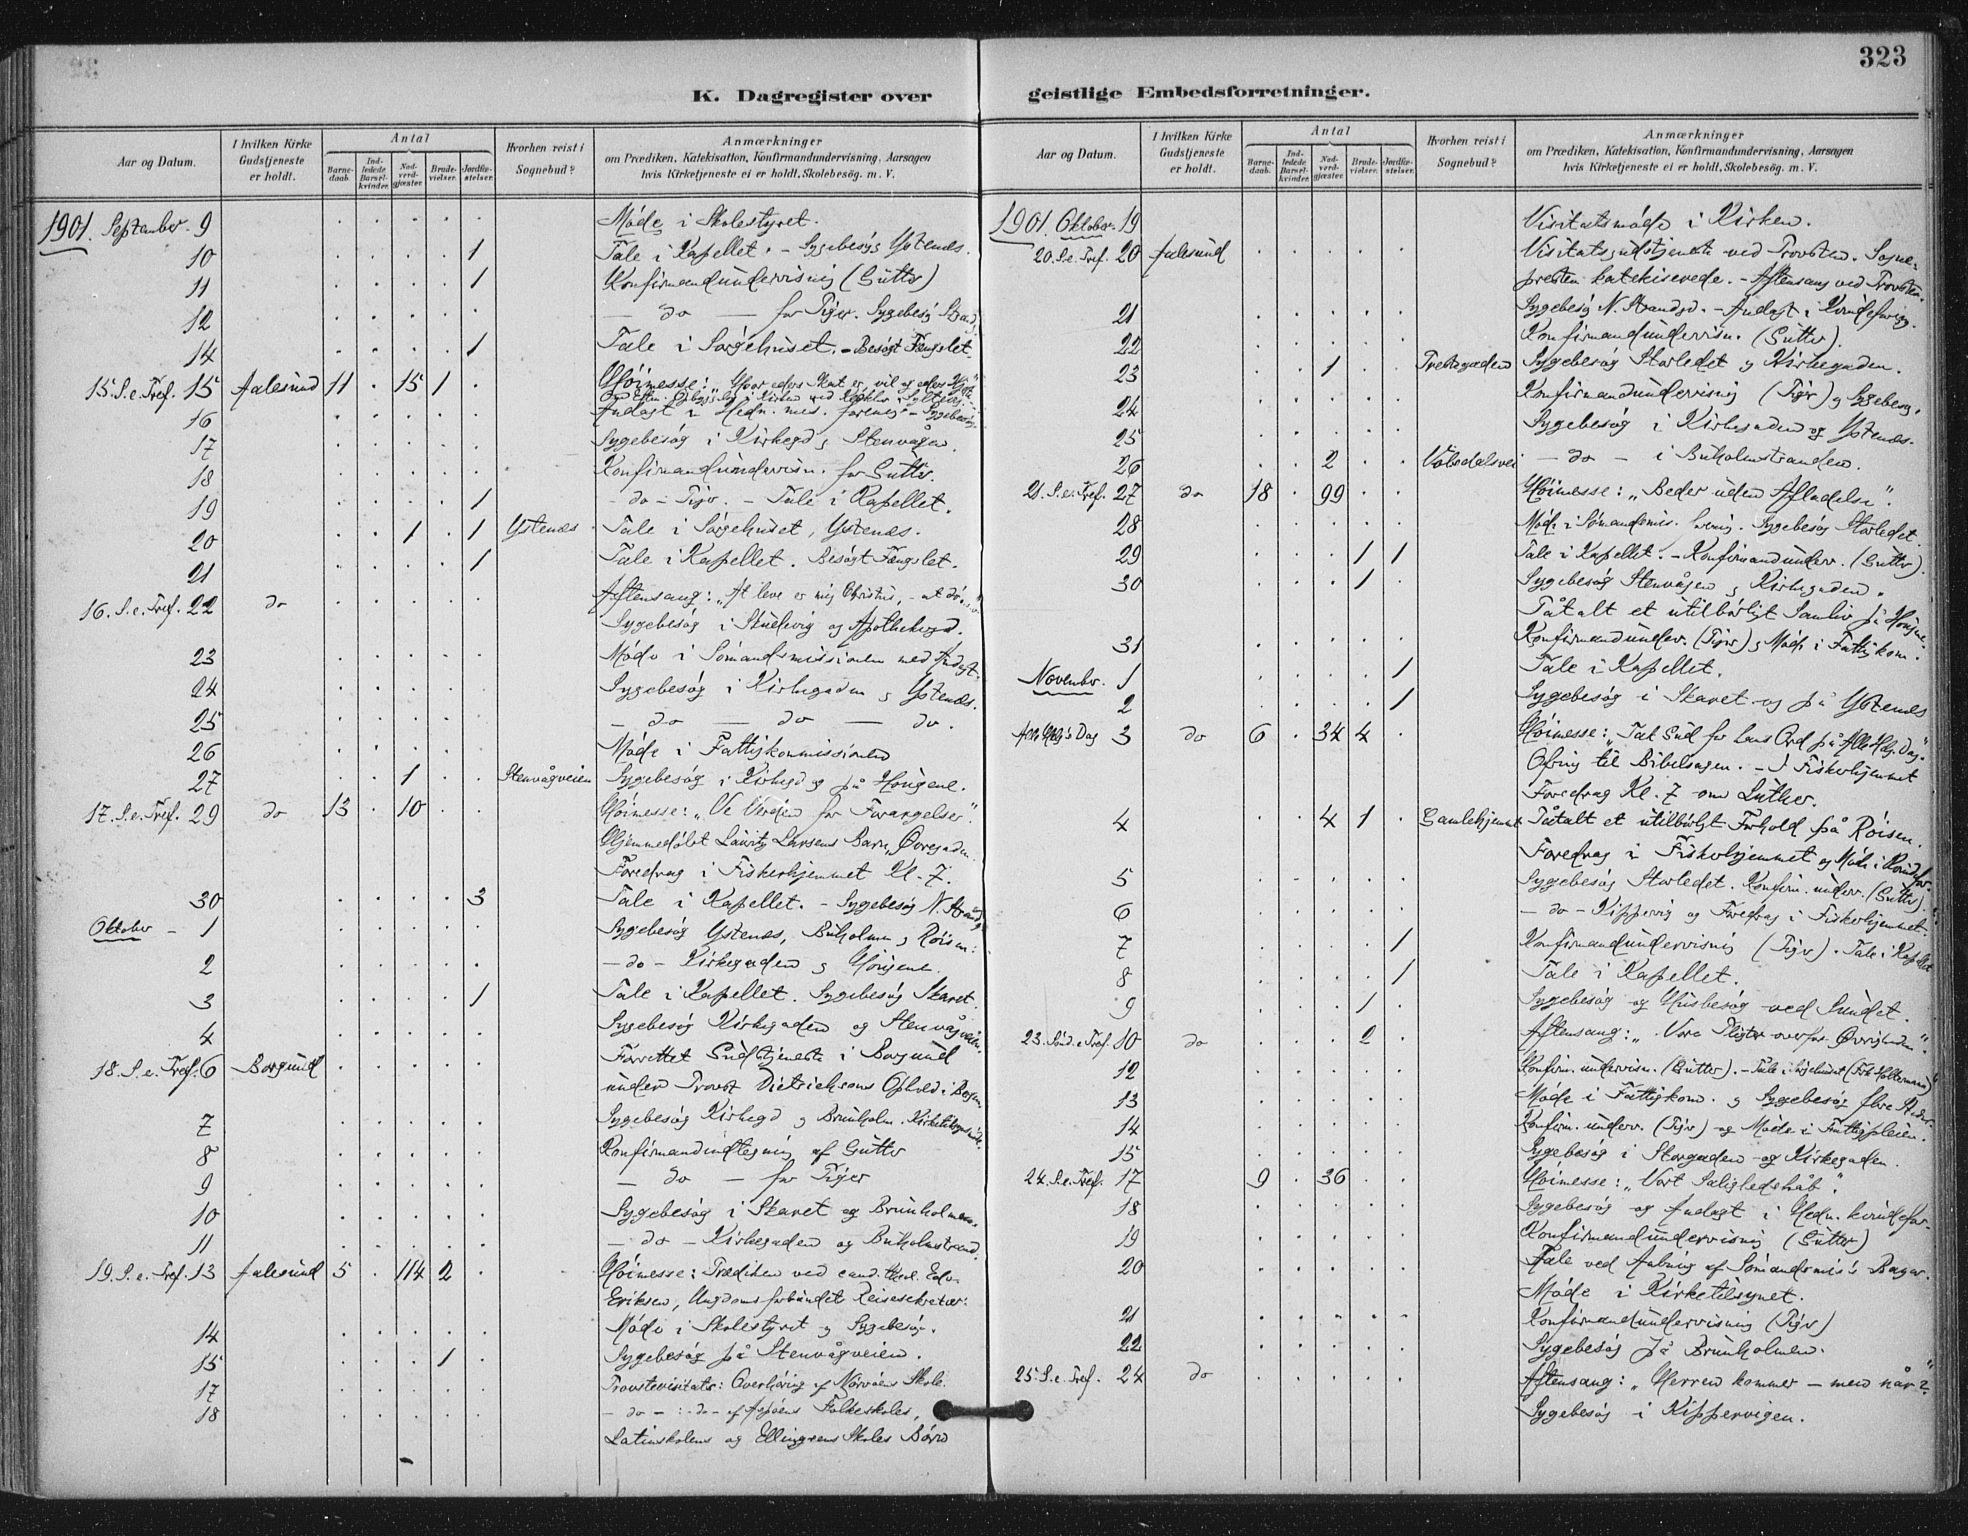 323
K. Dagregister over geistlige Embedsforretninger.
Aar og Datum. I hvilken Kirke Gudstjeneste er holdt. Antal Barne-daab. Ind-ledede Barsel-kvinder. Nad-verd-gjæster. Brude-vielser. Jordfæ-stelser. Hvorhen reist i Sognebud? Anmærkninger om Prædiken, Katekisation, Konfirmandundervisning, Aarsagen hvis Kirketjeneste ei er holdt, Skolebesøg. m. V.
1901. September 9 Möde i Skolestyret.
10 1 Tale i Kapellet. - Sygebesög Ystenæs.
11 1 Konfirmandundervisning (Gutter)
12 — do — for Piger. Sygebesög
14 1 Tale i Sörgehuset. - Besögt Fængslet.
15. S. e. Tref. 15 Aalesund 11 15 1 Höimesse: „Hvor eders Skat er, vil og eders
16 Andagt i Hedn. mis. forening - Sygebesög
17 Sygebesög i Kirkegd og Stenvågen.
18 Konfirmandundervisn. for Gutter.
19 1 - do - Piger. - Tale i Kapellet.
20 1 1 Ystenæs Tale i Sörgehuset, Ystenæs.
21 1 Tale i Kapellet. Besögt Fængslet.
16. S. e. Tref. 22 do Aftensang: „At leve er mig Christus, - at dö
Sygebesög i Skudevig og Apothekergd.
23 Möde i Sömandsmissionen med Andagt.
24 Sygebesög i Kirkegaden og Ystenæs.
25 — do — do — do.
26 Möde i Fattigkommissionen
27 1 Stenvågveien Sygebesög i Kirkegd og på Haugene.
17. S. e. Tref. 29 do 13 10 Höimesse: „Ve Verden for Forargelser".
Hjemmedöbt Lauritz Larsens Barn, Övregaden.
Foredrag i Fiskerhjemmet Kl. 7.
30 3 Tale i Kapellet. - Sygebesög N. Strand
Oktober - 1 Sygebesög Ystenæs, Buholmen og Röisen.
2 - do - Kirkegaden og Haugene.
3 1 Tale i Kapellet. Sygebesög Skaret
4 Sygebesög Kirkegaden og Stenvågveien.
18. S. e. Tref. 6 Borgund Forrettet Gudstjeneste i Borgund
under Provst Dietrichsons Ophold i Bergen.
7 Sygebesög Kirkegd og Brunholm.
8 Konfirmandindtegning af Gutter
9 — do — for Piger
10 Sygebesög i Skaret og Brunholmen.
11 - do - Kirkegaden og Buholmstrand.
19. S. e. Tref. 13 Aalesund 5 114 2 Höimesse: Prædiken ved cand. theol. Edv.
Eriksen, Ungdomsforbundet Reisesekretær.
14 Möde i Skolestyret og Sygebesög.
15 1 Sygebesög på Stenvågveien.
17 Provstevisitats: Overhöring af Nörvöens Skole.
18 - do - : - do - af Aspöens Folkeskoles,
Latinskolens og Ellingsens Skoles Börn
Aar og Datum. I hvilken Kirke Gudstjeneste er holdt. Antal Barne-daab. Ind-ledede Barsel-kvinder. Nad-verd-gjæster. Brude-vielser. Jordfæ-stelser. Hvorhen reist i Sognebud? Anmærkninger om Prædiken, Katekisation, Konfirmandundervisning, Aarsagen hvis Kirketjeneste ei er holdt, Skolebesøg. m. V.
1901. Oktober. 19 Visitatsmöde i Kirken.
20. S. e. Tref. 20 Aalesund Visitatsgudstjeneste ved Provsten. Sogne-
presten katekiserede. - Aftensang ved Provsten.
21 Sygebesög N. Strandgd. - Andagt i Kvindeforeng.
22 Konfirmandundervisn. (Gutter).
23 1 Sygebesög Storledet og Kirkegaden.
24 Konfirmandundervisning (Piger) og Sygebesög.
25 Sygebesög i Kirkegaden og Ystenæs.
26 2 Volsdalsvei — do — i Buholmstranden.
21. S. e. Tref. 27 do 18 99 Höimesse: „Beder uden Afladelse".
28 Möde i Sömandsmis. forenig. Sygebesög Storledet.
29 1 1 Tale i Kapellet. - Konfirmandunderv. (Gutter).
30 1 Sygebesög Stenvågen og Kirkegaden.
Påtalt et utilbörligt Samliv på Haugene.
31 Konfirmandunderv. (Piger) og Möde i Fattigkom.
November. 1 1 Tale i Kapellet.
2 1 Sygebesög i Skaret og på Ystenæs
Alle Helg's Dag 3 do 6 34 4 Höimesse: „Tak Gud for hans Ord på Alle Helg. Dag".
Ofring til Bibelsagen. - I Fiskerhjemmet
Foredrag Kl. 7 om Luther.
4 4 1 Gamlehjemmet Påtalt et utilbörligt Forhold på Röisen.
Foredrag i Fiskerhjemmet og Möde i
5 Sygebesög Storledet. Konfirm. underv. (Gutter).
6 - do - Kippervig og Foredrag i Fiskerhjemmet.
7 1 Konfirmandundervisning (Piger). Tale i Kapellet
8 1 Tale i Kapellet.
9 1 Sygebesög og Husbesög ved Sundet.
23. Sönd. e. Tref. 10 do 2 Aftensang: „Vore Pligter overfor Övrigheden".
12 Konfirm. undervisn. (Gutter). - Tale i hjemmet
13 Möde i Fattigkom. og Sygebesög flere Steder.
14 Konfirm. underv. (Piger) og Möde i Fattigpleien.
15 Sygebesög i Storgaden og Kirkegaden.
24. S. e. Tref. 17 9 36 Höimesse: „Vort Salighedshåb".
18 Sygebesög og Andagt i Hedn. kvindefor-
19 Konfirmandundervisning (Gutter)
20 Tale ved Åbning af Sömandsmis's Bazar.
Möde i Kirketilsynet.
21 Konfirmandundervisning (Piger)
22 Sygebesög på Brunholmen.
25. S. e. Tref. 24 do Aftensang: „Herren kommer - men når?"
Sygebesög i Kippervigen.